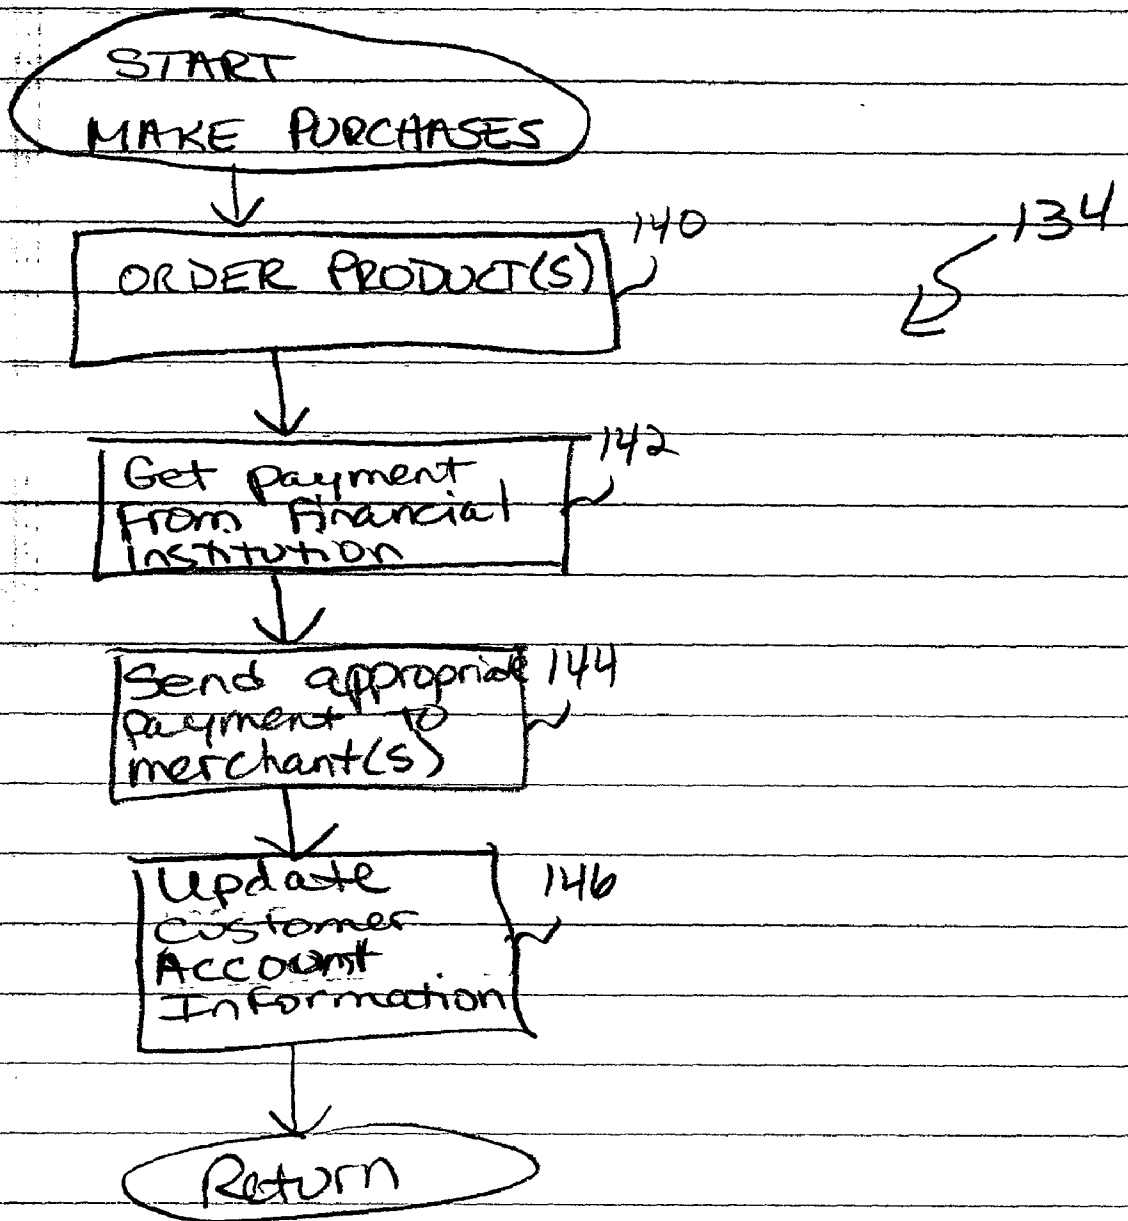 START
MAKE PURCHASES
140
134
ORDER PRODUCT(S)
142
Get payment
from financial
institution
144
Send appropriate
payment to
merchant(s)
146
Update
customer
Account
Information
Return